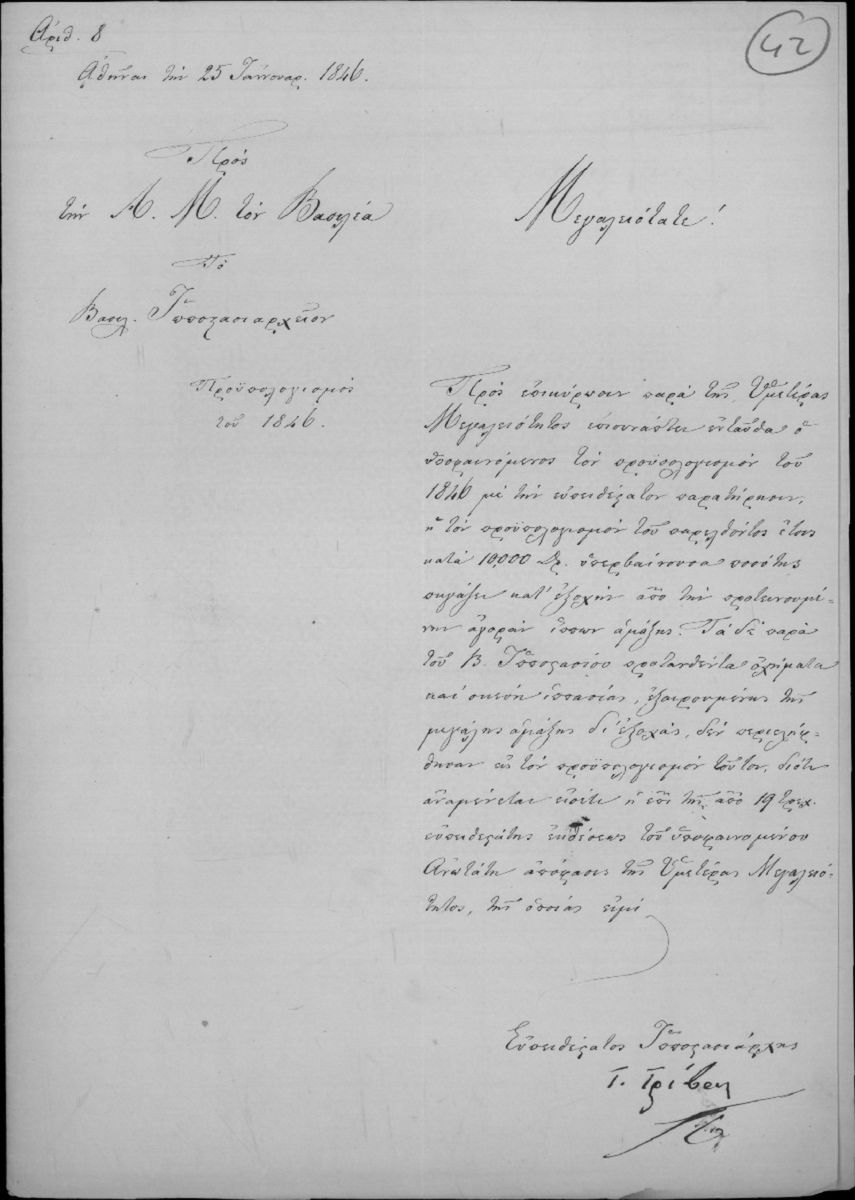 Αριθ. 8
42
Ἀθῆναι τὴν 25 Ἰαννουαρ. 1846.
Πρὸς
τὴν Α. Μ. τὸν Βασιλέα
Τὸ
Βασιλ. Ἱπποστασιαρχεῖον
Προϋπολογισμὸς
τοῦ 1846.
Μεγαλειότατε!
Πρὸς ἐπικύρωσιν παρὰ τῆς Ὑμετέρας
Μεγαλειότητος ἐπισυνάπτει ἐνταῦθα ὁ
ὑποφαινόμενος τὸν προϋπολογισμὸν τοῦ
1846 μὲ τὴν εὐπειθεστάτον παρατήρησιν,
ἡ τὸν προϋπολογισμὸν τοῦ παρελθόντος ἔτους
κατὰ 10,000 Δρ. ὑπερβαίνουσα ποσότης
πηγάζει κατ' ἐξοχὴν ἀπὸ τὴν προτεινουμέ-
νην ἀγορὰν ἵππων ἁμάξης. Τὰ δὲ παρὰ
τοῦ Β. Ἱπποστασίου προταθέντα ὀχήματα
καὶ σκεύη ἱππασίας, ἐξαιρουμένης τῆς
μεγάλης ἁμάξης δι' ἐξοχὰς, δὲν περιελήφ-
θησαν εἰς τὸν προϋπολογισμὸν τοῦτον, διότι
ἀναμένεται εἰσέτι ἡ ἐπὶ τῆς ἀπὸ 19 τρεχ.
εὐπειθεστάτης ἐκθέσεως τοῦ ὑποφαινομένου
Ἀνωτάτη ἀπόφασις τῆς Ὑμετέρας Μεγαλειό-
τητος, τῆς ὁποίας εἰμὶ
Εὐπειθέστατος Ἱπποστασιάρχης